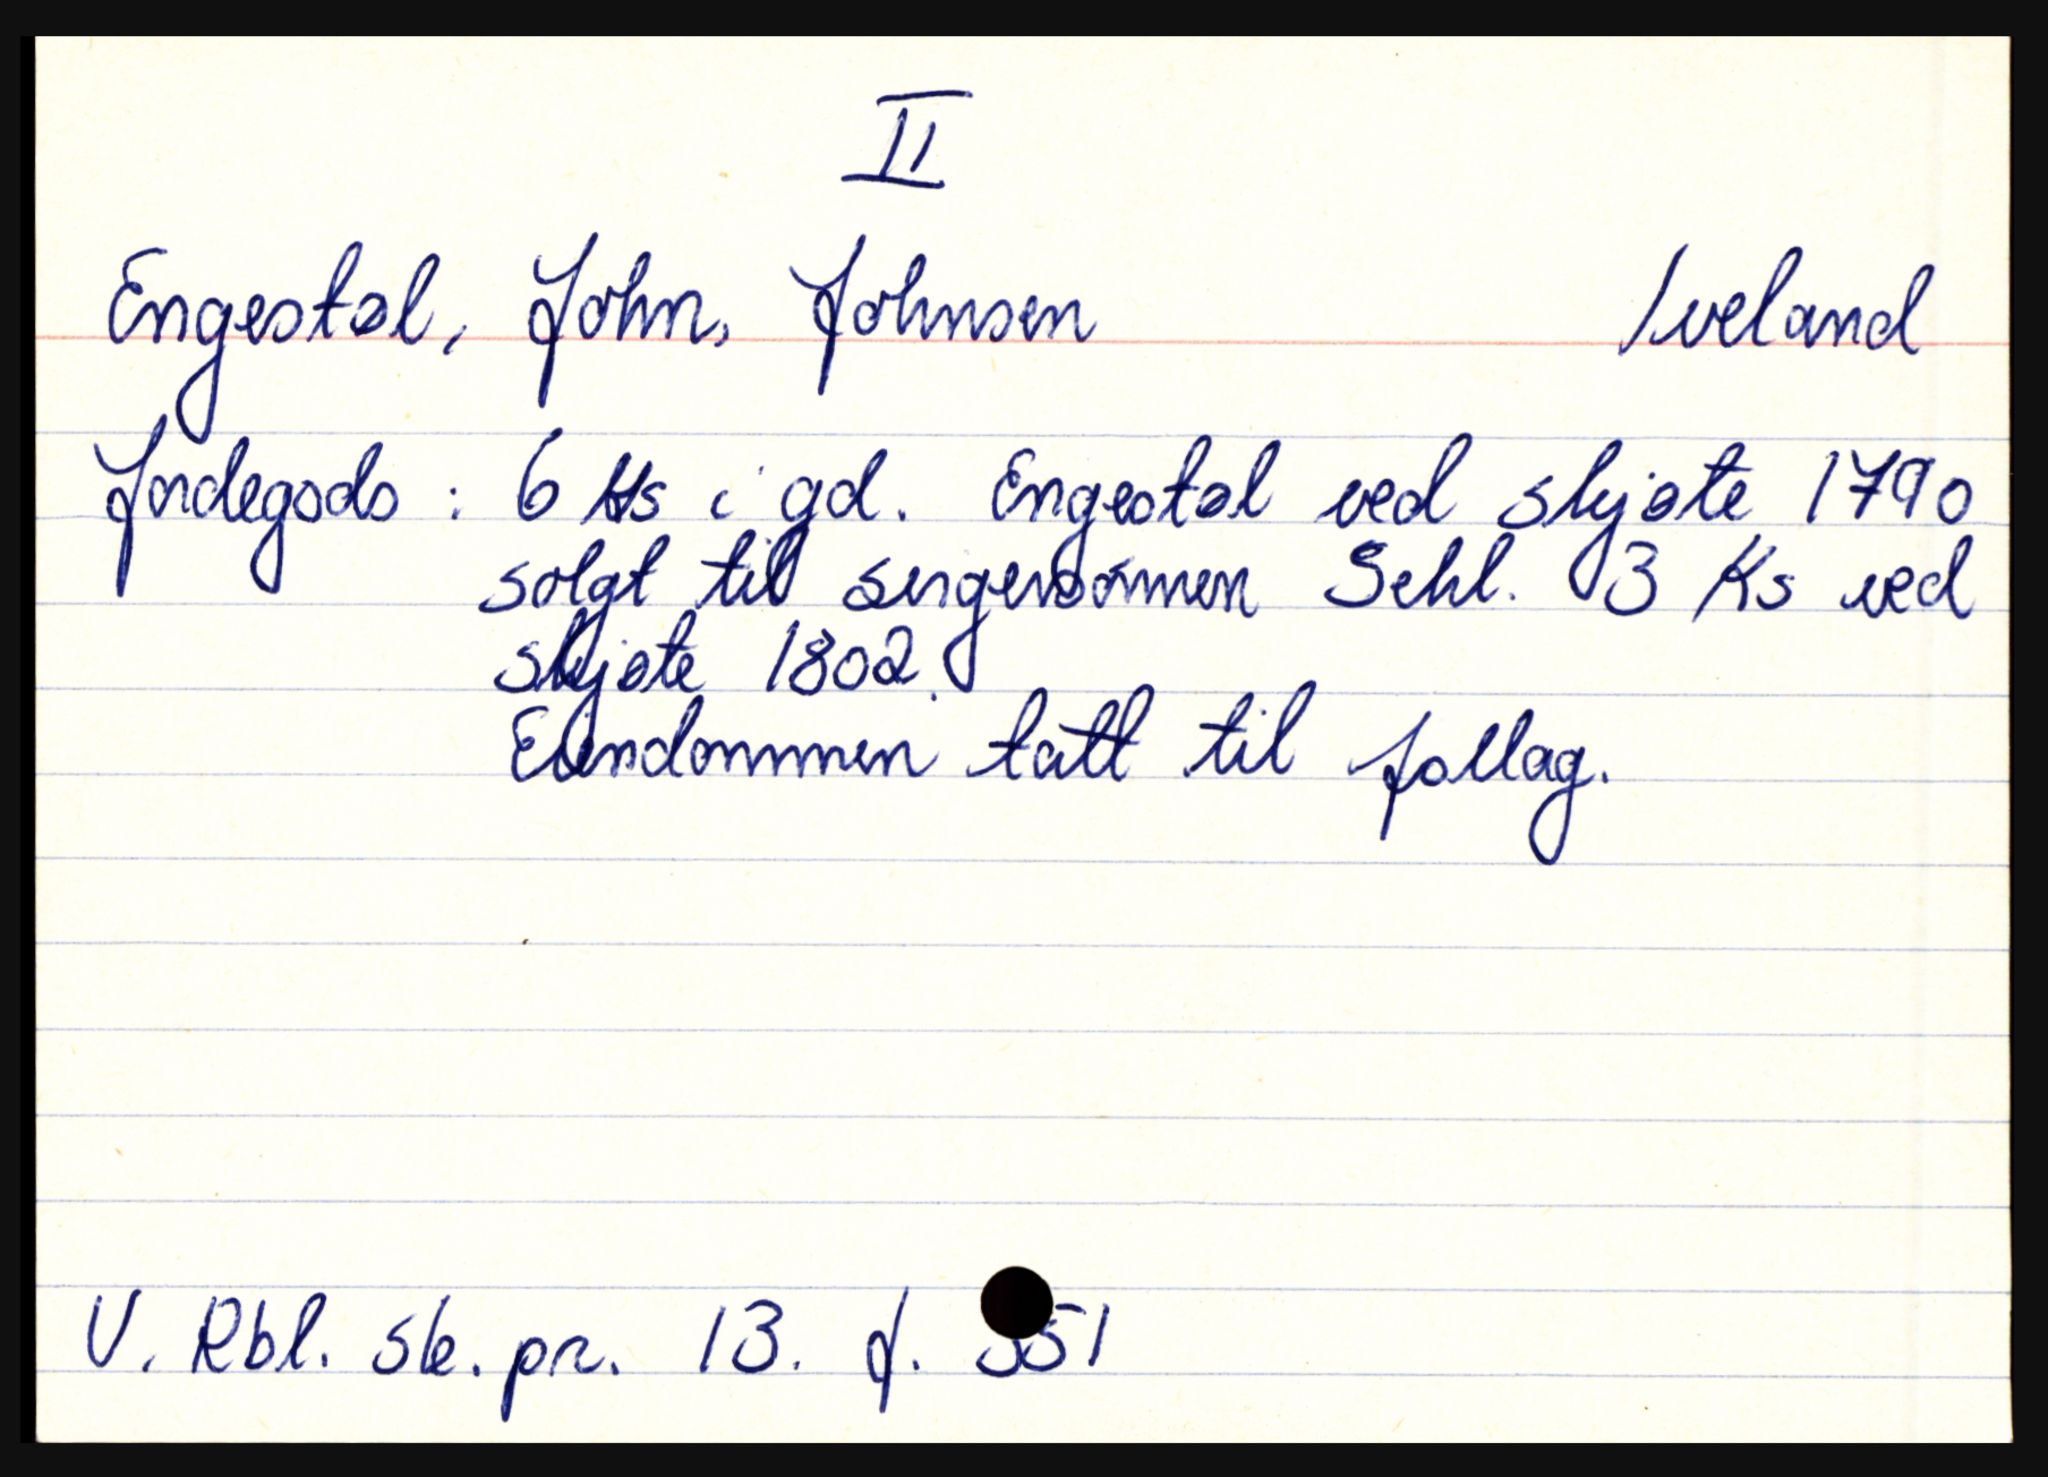 II
Engestøl, John, Johnsen Iveland
Jordegods : 6 Ks i gd. Engestøl ved skjøte 1790
solgt til svigersønnen Sehl. 3 Ks ved
skjøte 1802.
Eiendommen tatt til follag.
V. Rbl. sk. pr. 13. f. 551